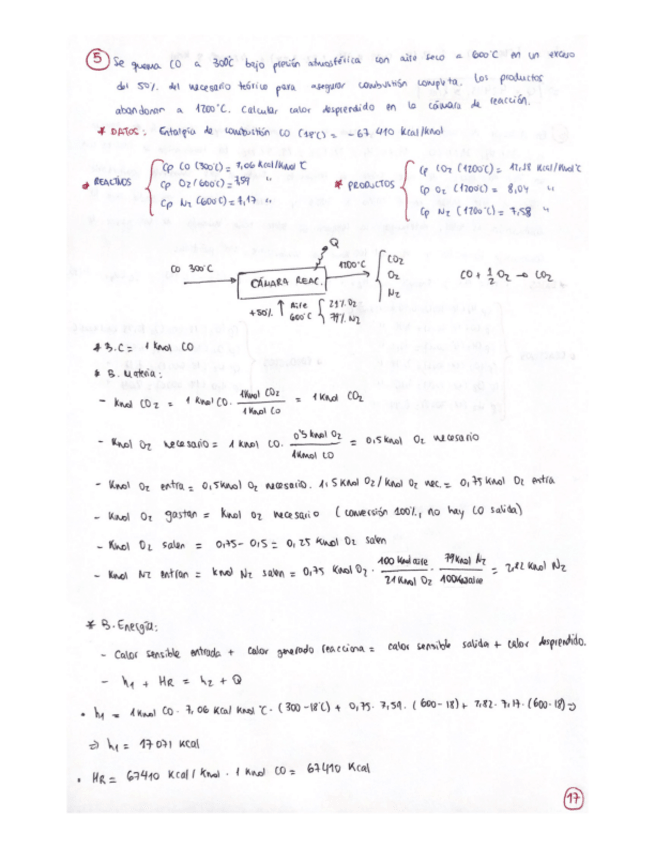 5 Se quema CO a 300°C bajo presión atmosférica con aire seco a 600°C en un exceso
del 50% del necesario teórico para asegurar combustión completa. Los productos
abandonan a 1200°C. Calcular calor desprendido en la cámara de reacción.
* DATOS: Entalpía de combustión CO (18°C) = -67,410 Kcal/kmol
* REACTIVOS
Cp CO (300°C) = 7,06 Kcal/Kmol°C
Cp O2 (600°C) = 7,59 "
Cp N2 (600°C) = 7,17 "
* PRODUCTOS
Cp CO2 (1200°C) = Kcal/Kmol°C
Cp O2 (1200°C) = 8,04 "
Cp N2 (1200°C) = 7,58 "
Q
CO 300°C
CÁMARA REAC.
1200°C
CO2
O2
N2
CO + 1/2 O2 → CO2
+50% ↑ Aire 600°C
21% O2
79% N2
* B.C = 1 Kmol CO
* B. Materia:
- Kmol CO2 = 1 Kmol CO · 1Kmol CO2 / 1Kmol CO = 1 Kmol CO2
- Kmol O2 necesario = 1 Kmol CO · 0'5 Kmol O2 / 1Kmol CO = 0,5 Kmol O2 necesario
- Kmol O2 entra = 0,5Kmol O2 necesario · 1,5 Kmol O2/Kmol O2 nec. = 0,75 Kmol O2 entra
- Kmol O2 gastan = Kmol O2 necesario (conversión 100%, no hay CO salida)
- Kmol O2 salen = 0,75 - 0,5 = 0,25 Kmol O2 salen
- Kmol N2 entran = Kmol N2 salen = 0,75 Kmol O2 · 100 Kmol aire / 21 Kmol O2 · 79 Kmol N2 / 100Kmol aire = 2,82 Kmol N2
* B. Energía:
- Calor sensible entrada + calor generado reacciona = calor sensible salida + calor desprendido.
- h1 + HR = h2 + Q
· h1 = 1 Kmol CO · 7,06 Kcal/Kmol°C · (300-18°C) + 0,75 · 7,59 · (600-18) + 2,82 · 7,17 · (600-18) ⇒
⇒ h1 = 17071 Kcal
· HR = 67410 Kcal/Kmol · 1 Kmol CO = 67410 Kcal
17